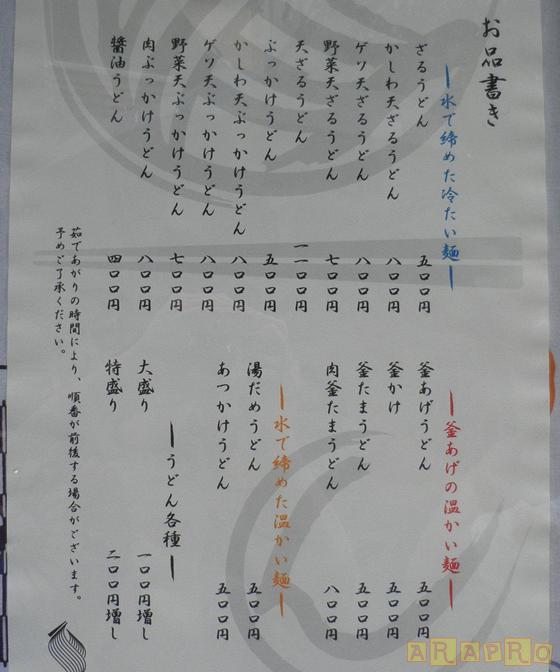 お品書き
水で締めた冷たい麺
ざるうどん 五〇〇円
かしわ天ざるうどん 八〇〇円
ゲソ天ざるうどん 八〇〇円
野菜天ざるうどん 七〇〇円
天ざるうどん 一一〇〇円
ぶっかけうどん 五〇〇円
かしわ天ぶっかけうどん 八〇〇円
ゲソ天ぶっかけうどん 八〇〇円
野菜天ぶっかけうどん 七〇〇円
肉ぶっかけうどん 八〇〇円
醤油うどん 四〇〇円
釜あげの温かい麺
釜あげうどん 五〇〇円
釜かけ 五〇〇円
釜たまうどん 五〇〇円
肉釜たまうどん 八〇〇円
水で締めた温かい麺
湯だめうどん 五〇〇円
あつかけうどん 五〇〇円
うどん各種
大盛り 一〇〇円増し
特盛り 二〇〇円増し
茹であがりの時間により、順番が前後する場合がございます。
予めご了承ください。
ARAPRO